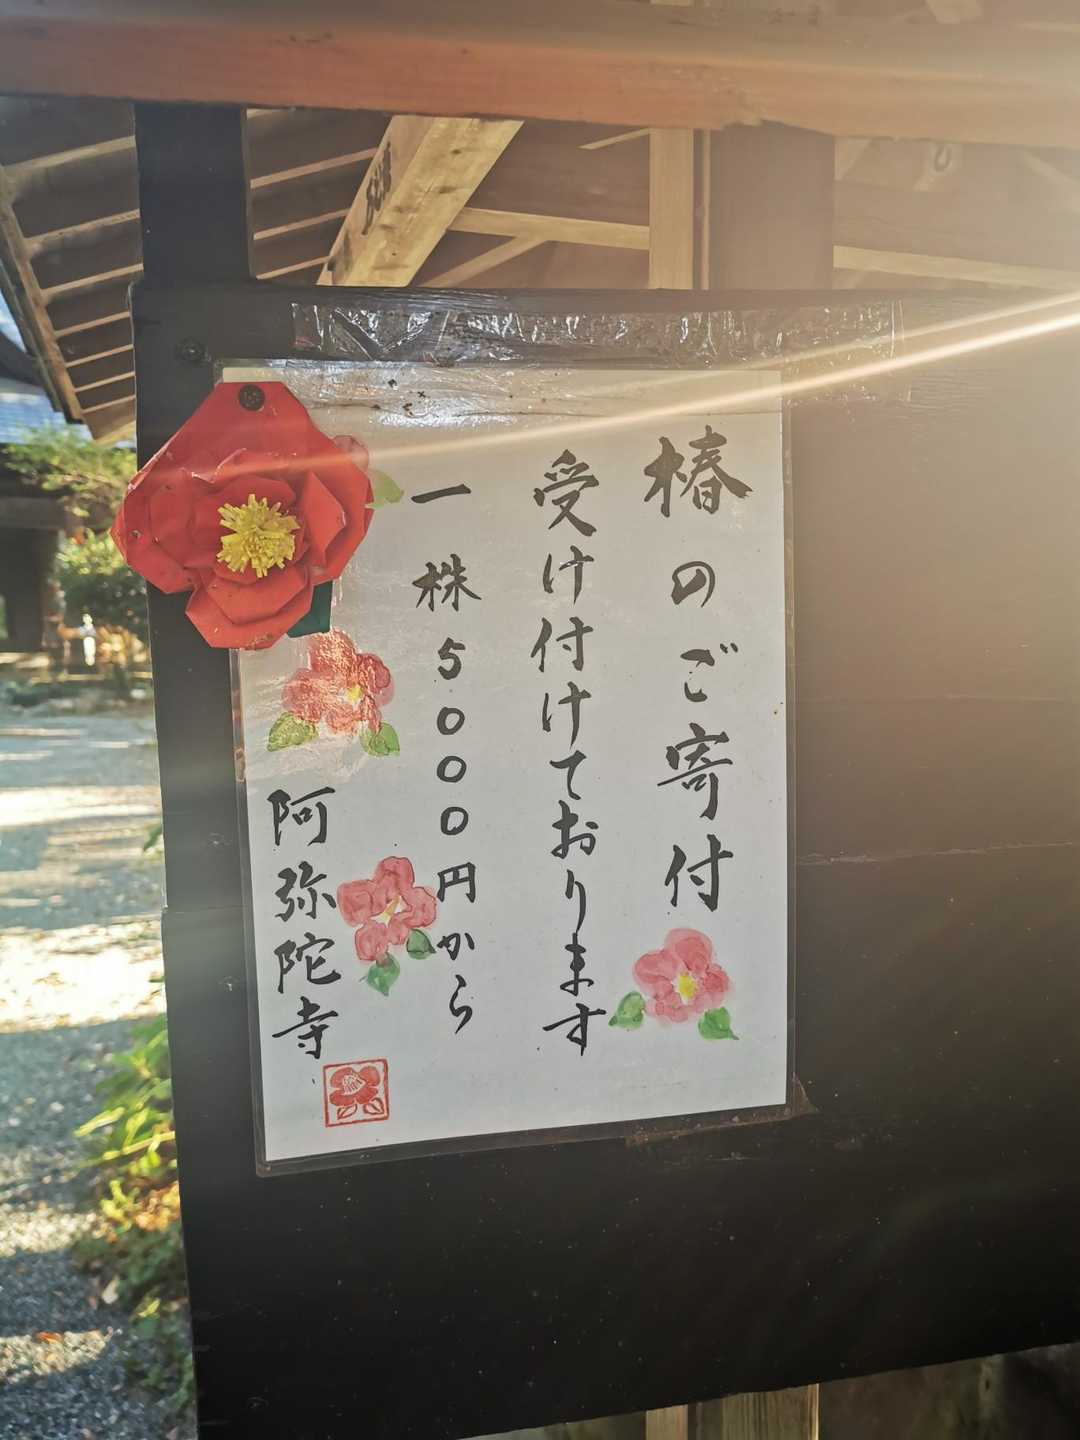 椿のご寄付
受け付けております
一株5000円から
阿弥陀寺